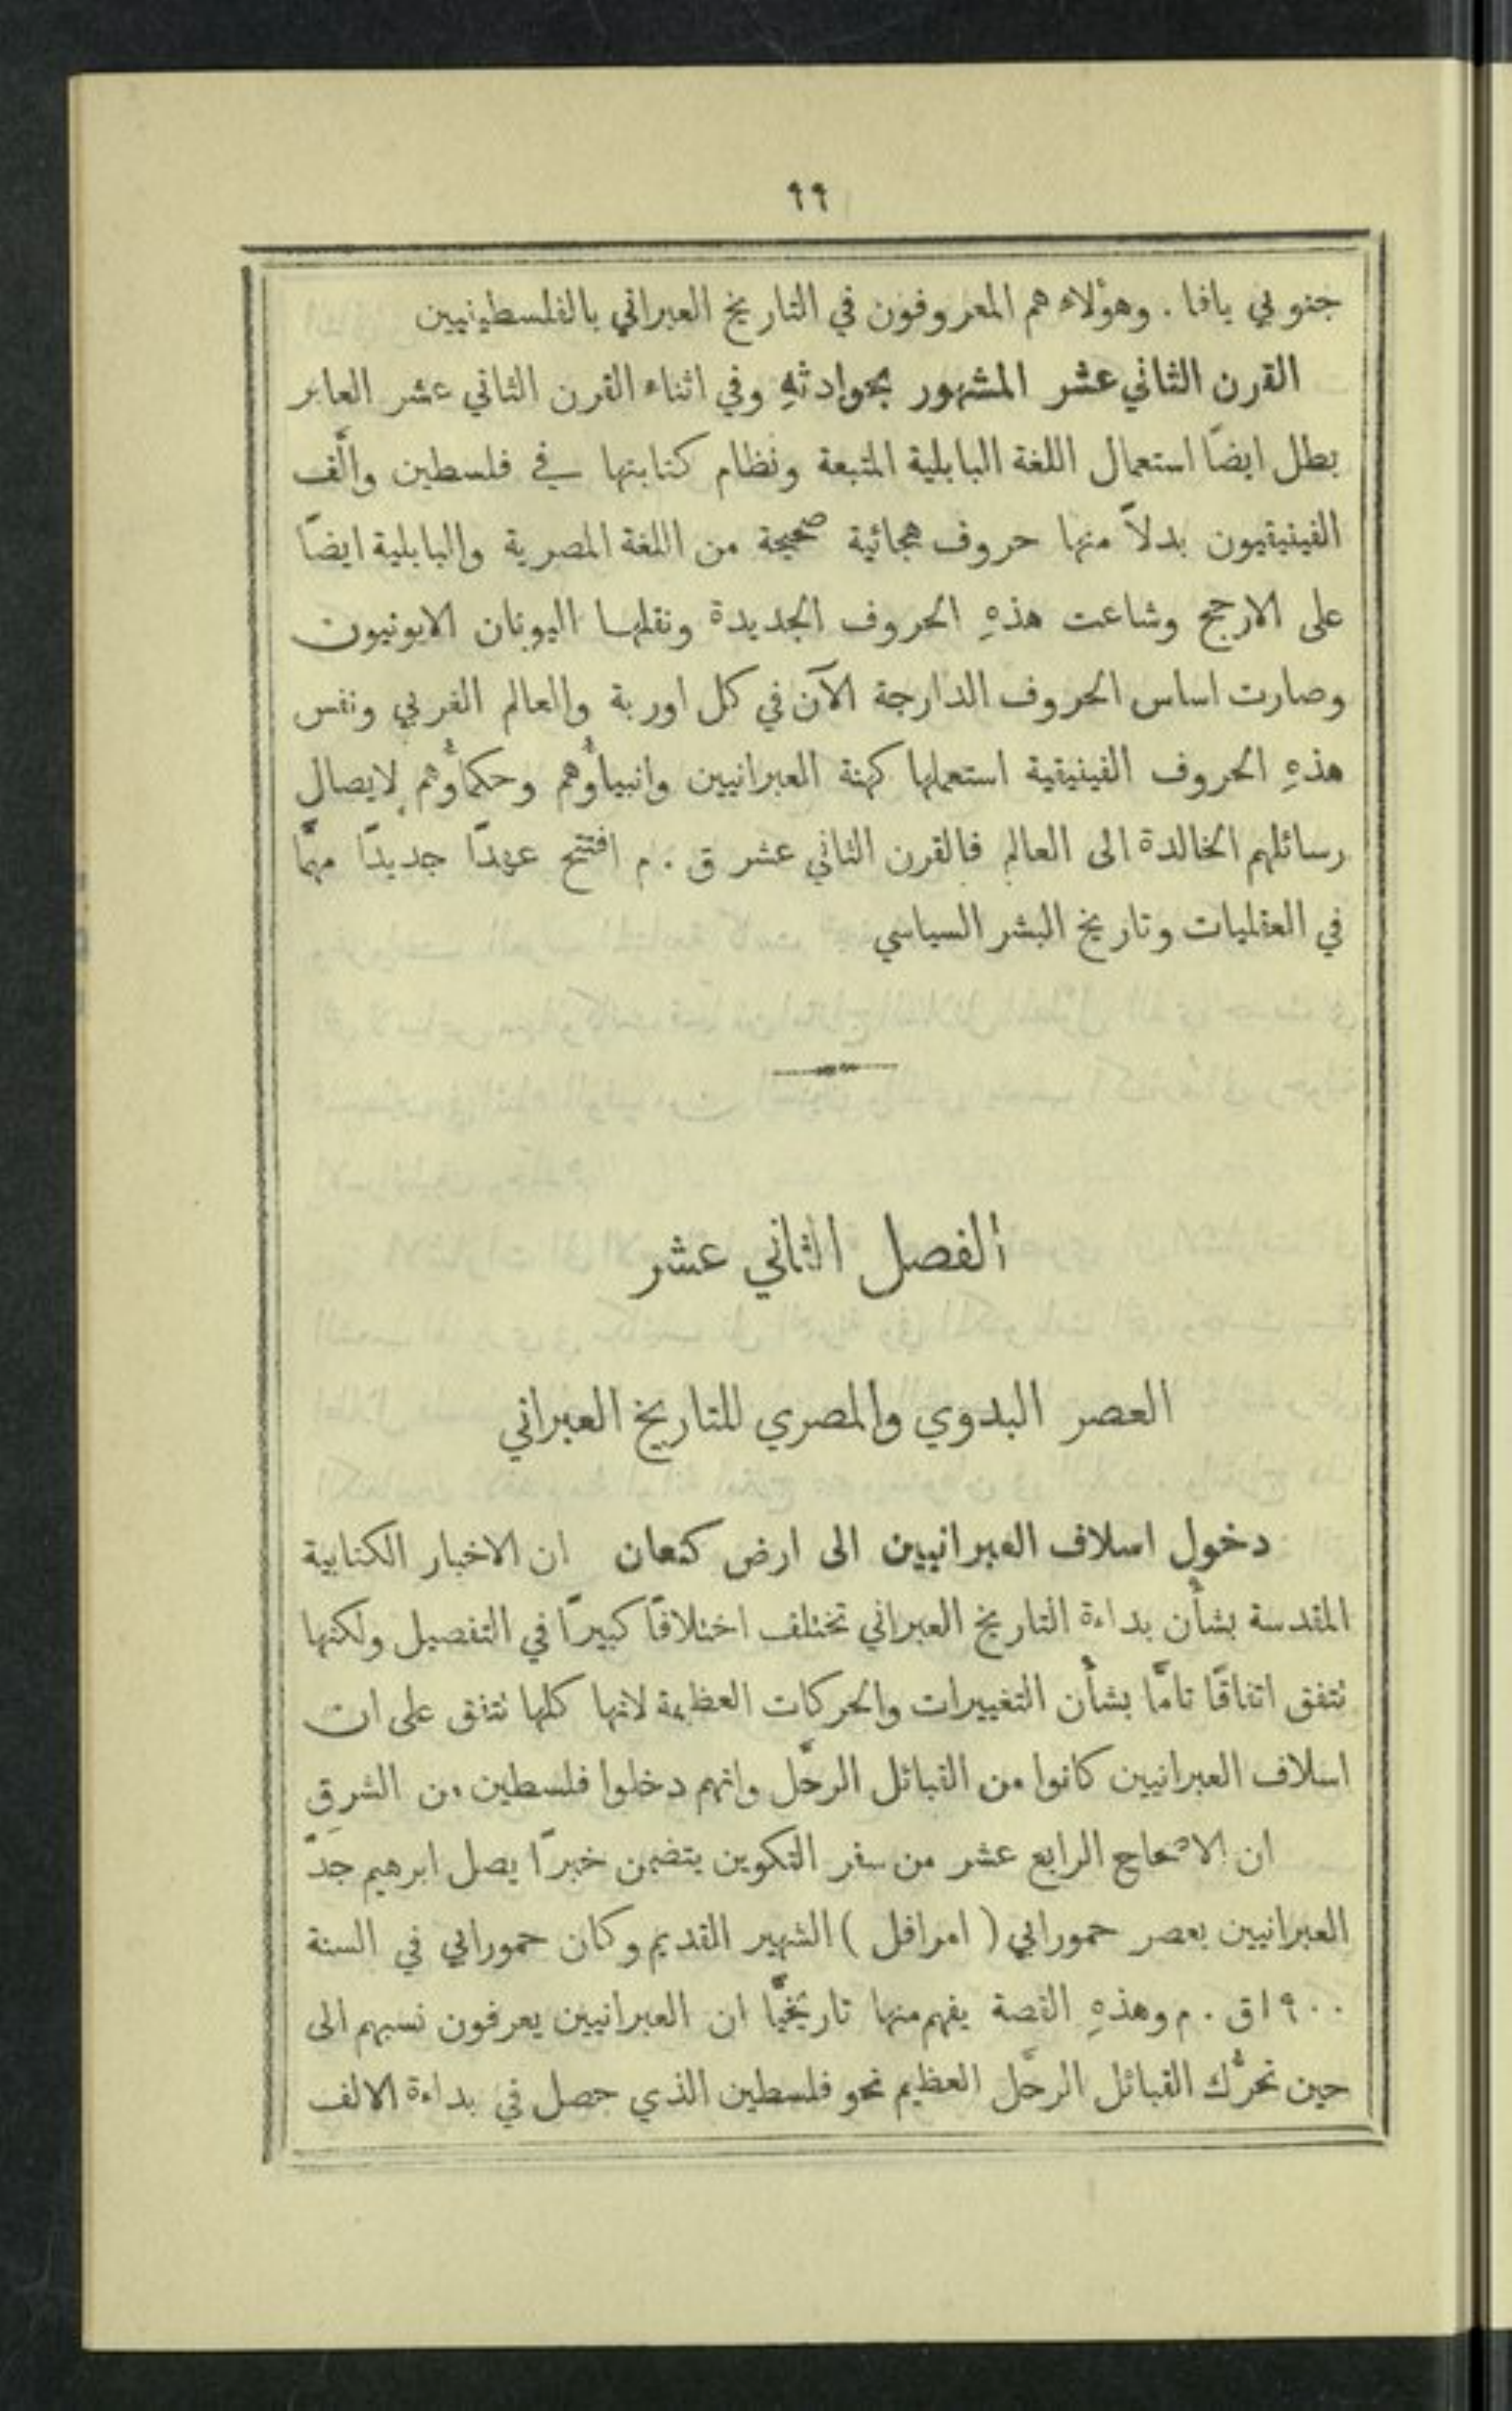 ٩٩
جنوبي يافا . وهؤلاء هم المعروفون في التاريخ العبراني بالفلسطينيين
القرن الثاني عشر المشهور بحوادثهِ وفي اثناء القرن الثاني عشر العابر
بطل ايضًا استعمال اللغة البابلية المتبعة ونظام كتابتها في فلسطين والَّف
الفينيقيون بدلاً منها حروف هجائية صحيحة من اللغة المصرية والبابلية ايضًا
على الارجح وشاعت هذهِ الحروف الجديدة ونقلها اليونان الايونيون
وصارت اساس الحروف الدارجة الآن في كل اوربة والعالم الغربي ونفس
هذهِ الحروف الفينيقية استعملها كهنة العبرانيين وانبياؤُهم وحكماؤُهم لايصال
رسائلهم الخالدة الى العالم فالقرن الثاني عشر ق . م افتتح عهدًا جديدًا مهمًّا
في العقليات وتاريخ البشر السياسي
الفصل الثاني عشر
العصر البدوي والمصري للتاريخ العبراني
دخول اسلاف العبرانيين الى ارض كنعان ان الاخبار الكتابية
المقدسة بشأن بداءة التاريخ العبراني تختلف اختلافًا كبيرًا في التفصيل ولكنها
نتفق اتفاقًا تامًّا بشأن التغييرات والحركات العظيمة لانها كلها نتفق على ان
اسلاف العبرانيين كانوا من القبائل الرحَّل وانهم دخلوا فلسطين من الشرق
ان الاصحاح الرابع عشر من سفر التكوين يتضمن خبرًا يصل ابرهيم جدّ
العبرانيين بعصر حمورابي ( امرافل ) الشهير القديم وكان حمورابي في السنة
١٩٠٠ ق . م وهذهِ القصة يفهم منها تاريخيًّا ان العبرانيين يعرفون نسبهم الى
حين تحرُّك القبائل الرحَّل العظيم نحو فلسطين الذي حصل في بداءة الالف